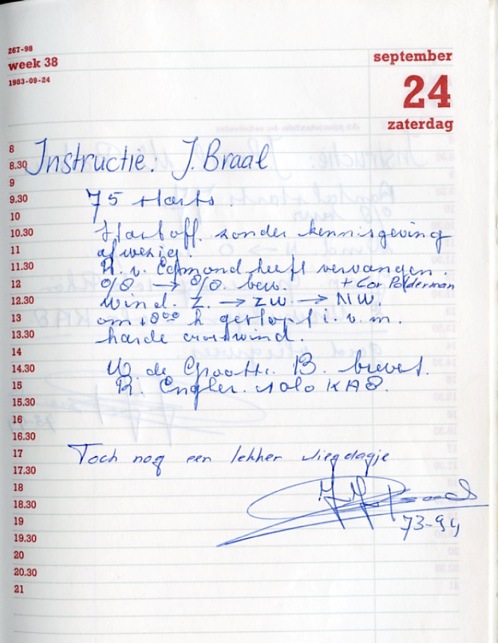 267-98
week 38
1983-09-24
september
24
zaterdag
8
8.30
Instructie. J. Braal
9
9.30
75 starts
10
10.30
Startoff. zonder kennisgeving
11
afwezig.
11.30
R. v. Egmond heeft vervangen.
12
+ Cor Polderman
0/0 → 8/8 bew.
12.30
Wind. Z. → ZW. → NW.
13
om 1800 h gestopt i.v.m.
13.30
harde crosswind.
14
14.30
W. de Groot. B. brevet.
15
R. Engler. solo KA8.
15.30
16
16.30
17
Toch nog een lekker vliegdagje
17.30
18
18.30
J. Braal
19
73-94
19.30
20
20.30
21